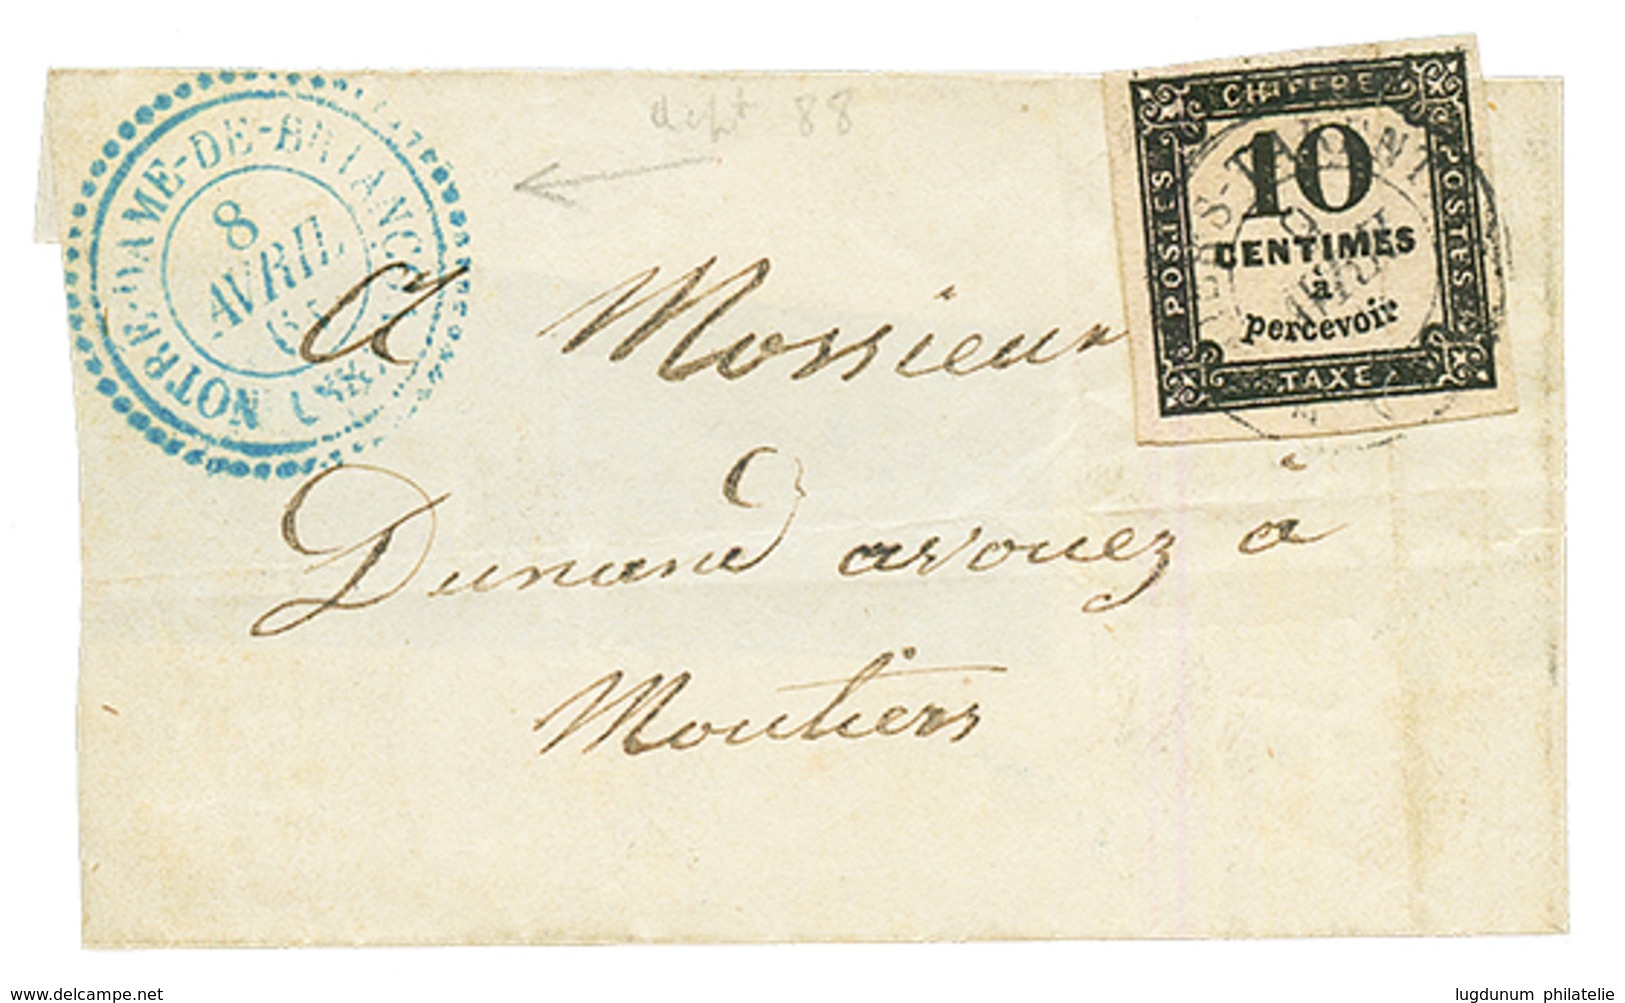 dept 88
NOTRE-DAME-DE-BRIANÇON
8
AVRIL
CHIFFRE
POSTES
10
CENTIMES
à
percevoir
POSTES
TAXE
A Monsieur
Dunand avouez à
Moutiers
www.delcampe.net
lugdunum philatelie